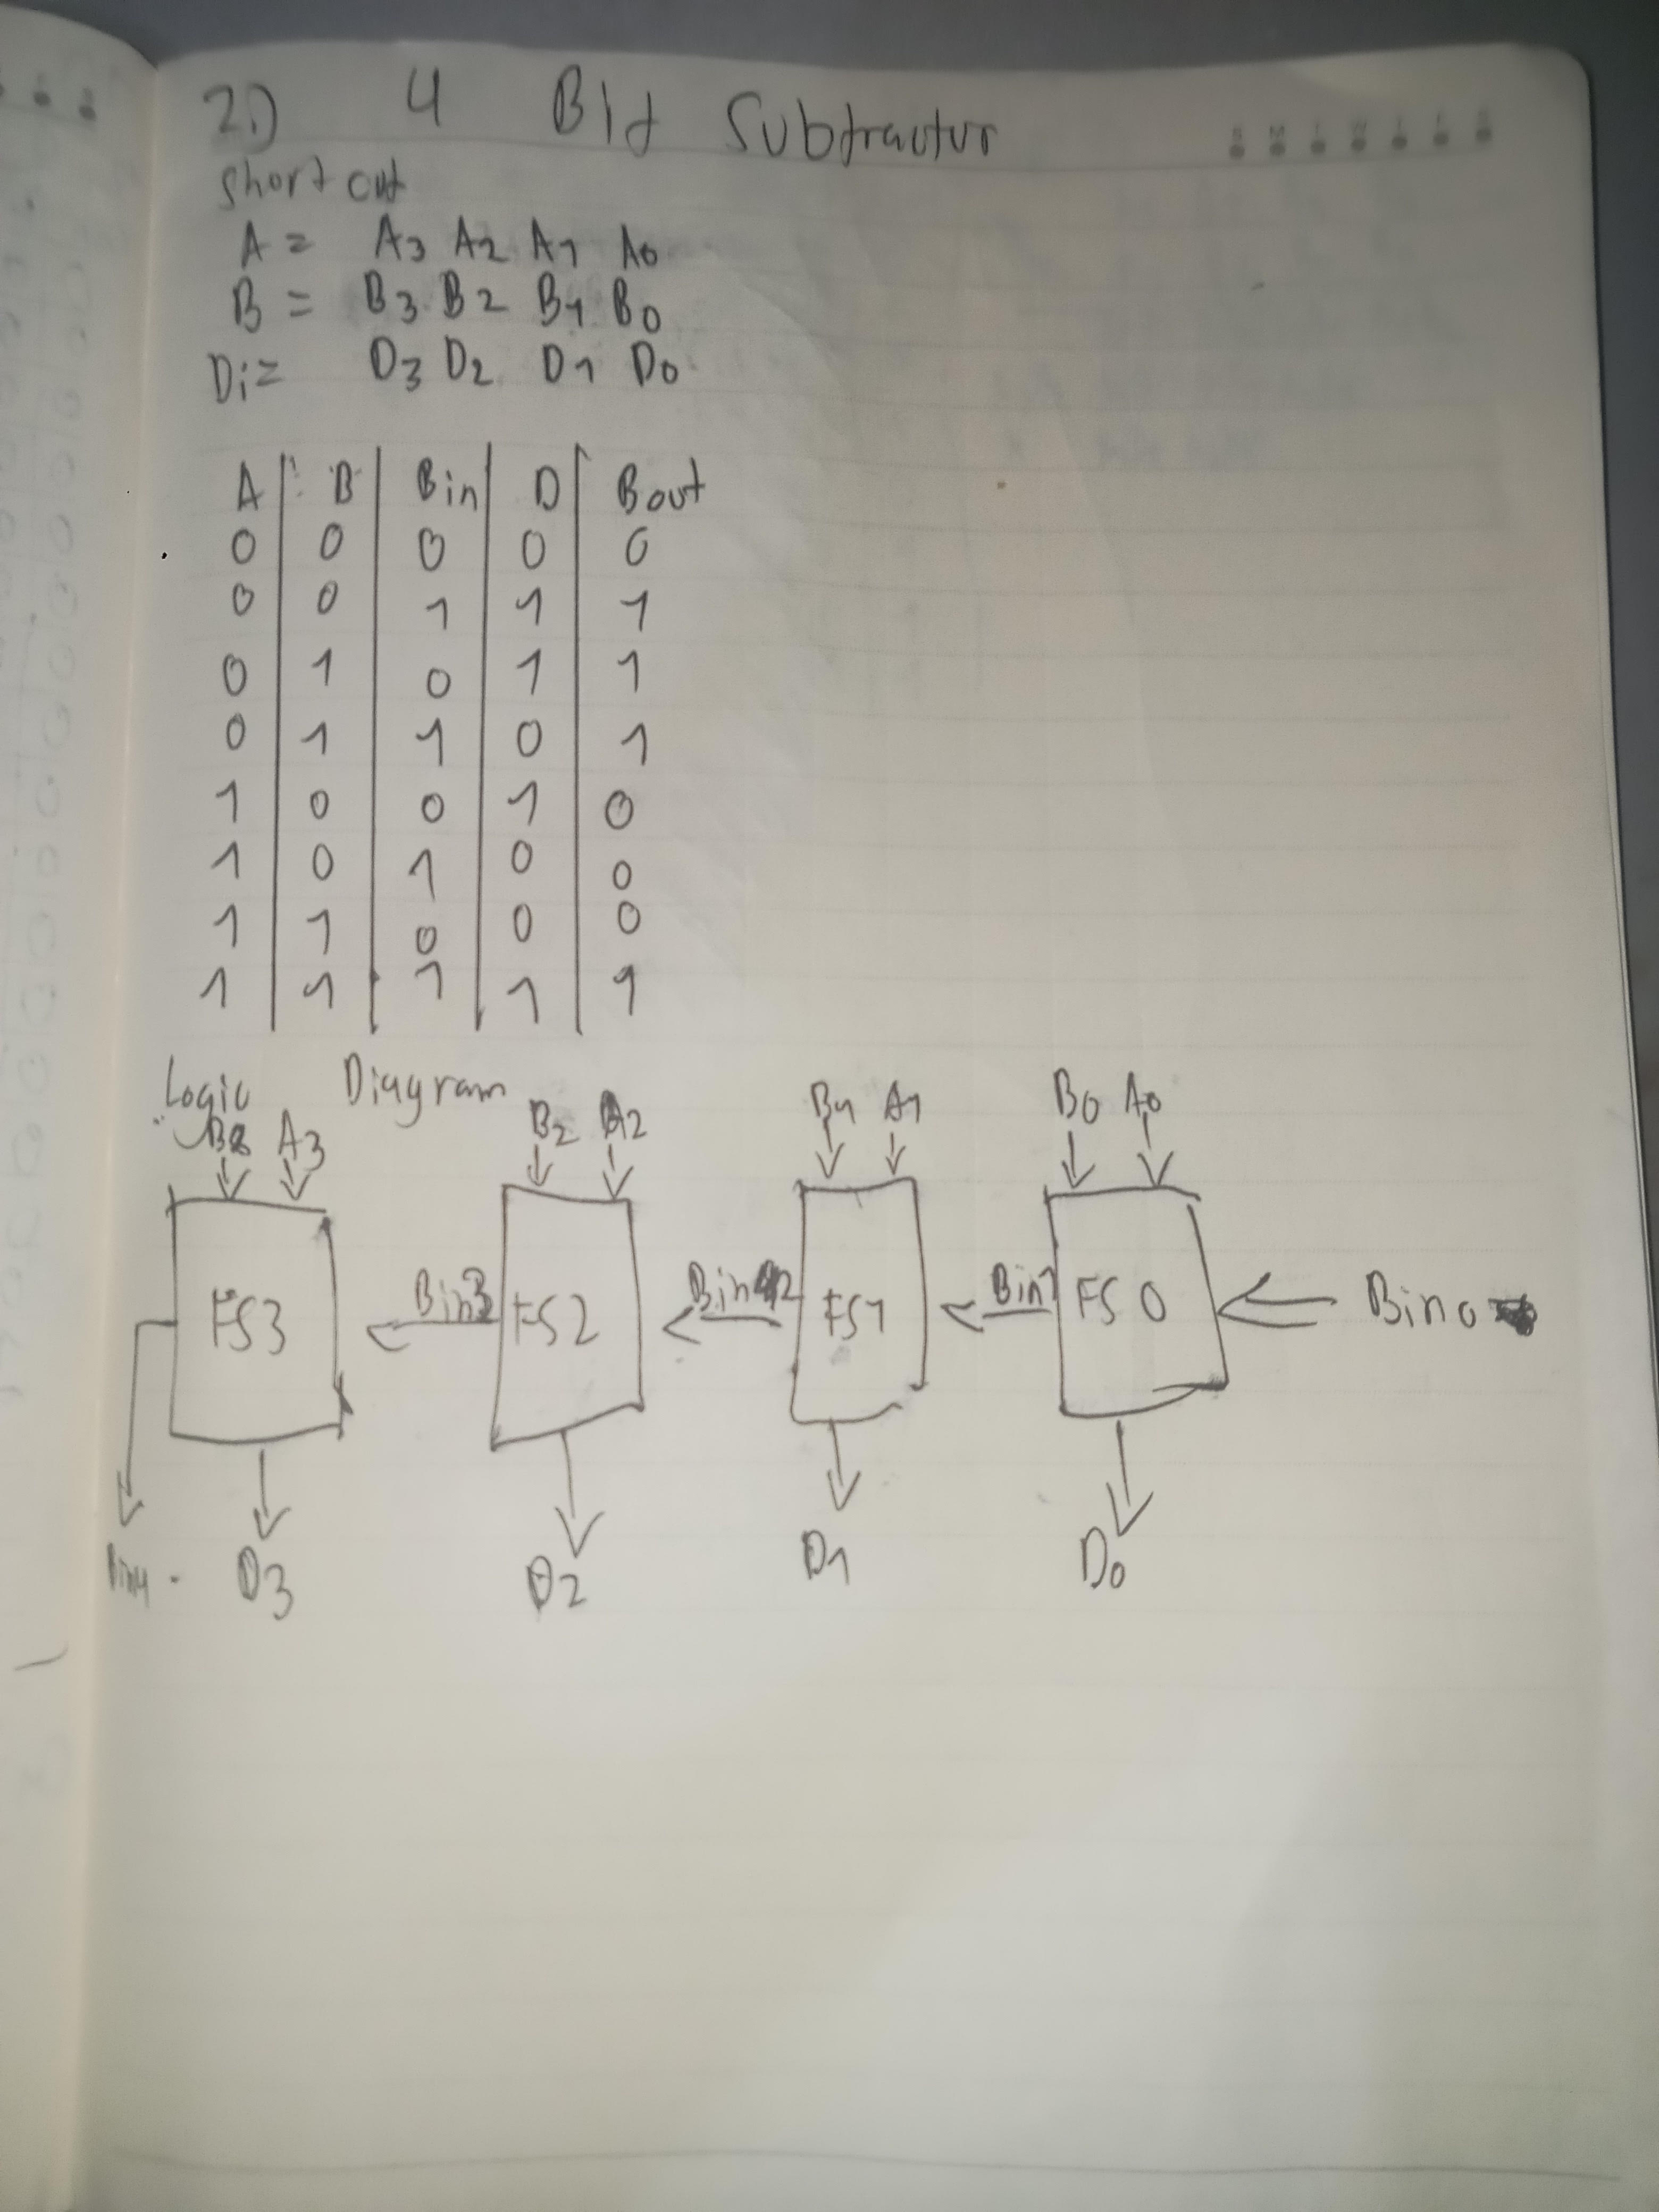 2) 4 Bit Subtractor
Short cut
A = A3 A2 A1 A0
B = B3 B2 B1 B0
Di = D3 D2 D1 D0
A B Bin D Bout
0 0 0 0 0
0 0 1 1 1
0 1 0 1 1
0 1 1 0 1
1 0 0 1 0
1 0 1 0 0
1 1 0 0 0
1 1 1 1 1
Logic Diagram
A3 B2 A2 B1 A1 B0 A0
FS3 Bin3 FS2 FS1 Bin1 FS0 Bin0
Bin4 D3 D2 D1 D0